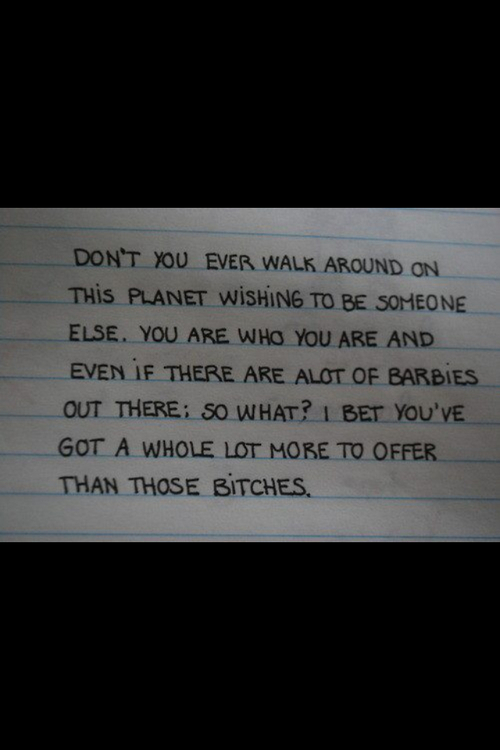 DON'T YOU EVER WALK AROUND ON
THIS PLANET WISHING TO BE SOMEONE
ELSE. YOU ARE WHO YOU ARE AND
EVEN IF THERE ARE ALOT OF BARBIES
OUT THERE; SO WHAT? I BET YOU'VE
GOT A WHOLE LOT MORE TO OFFER
THAN THOSE BITCHES.